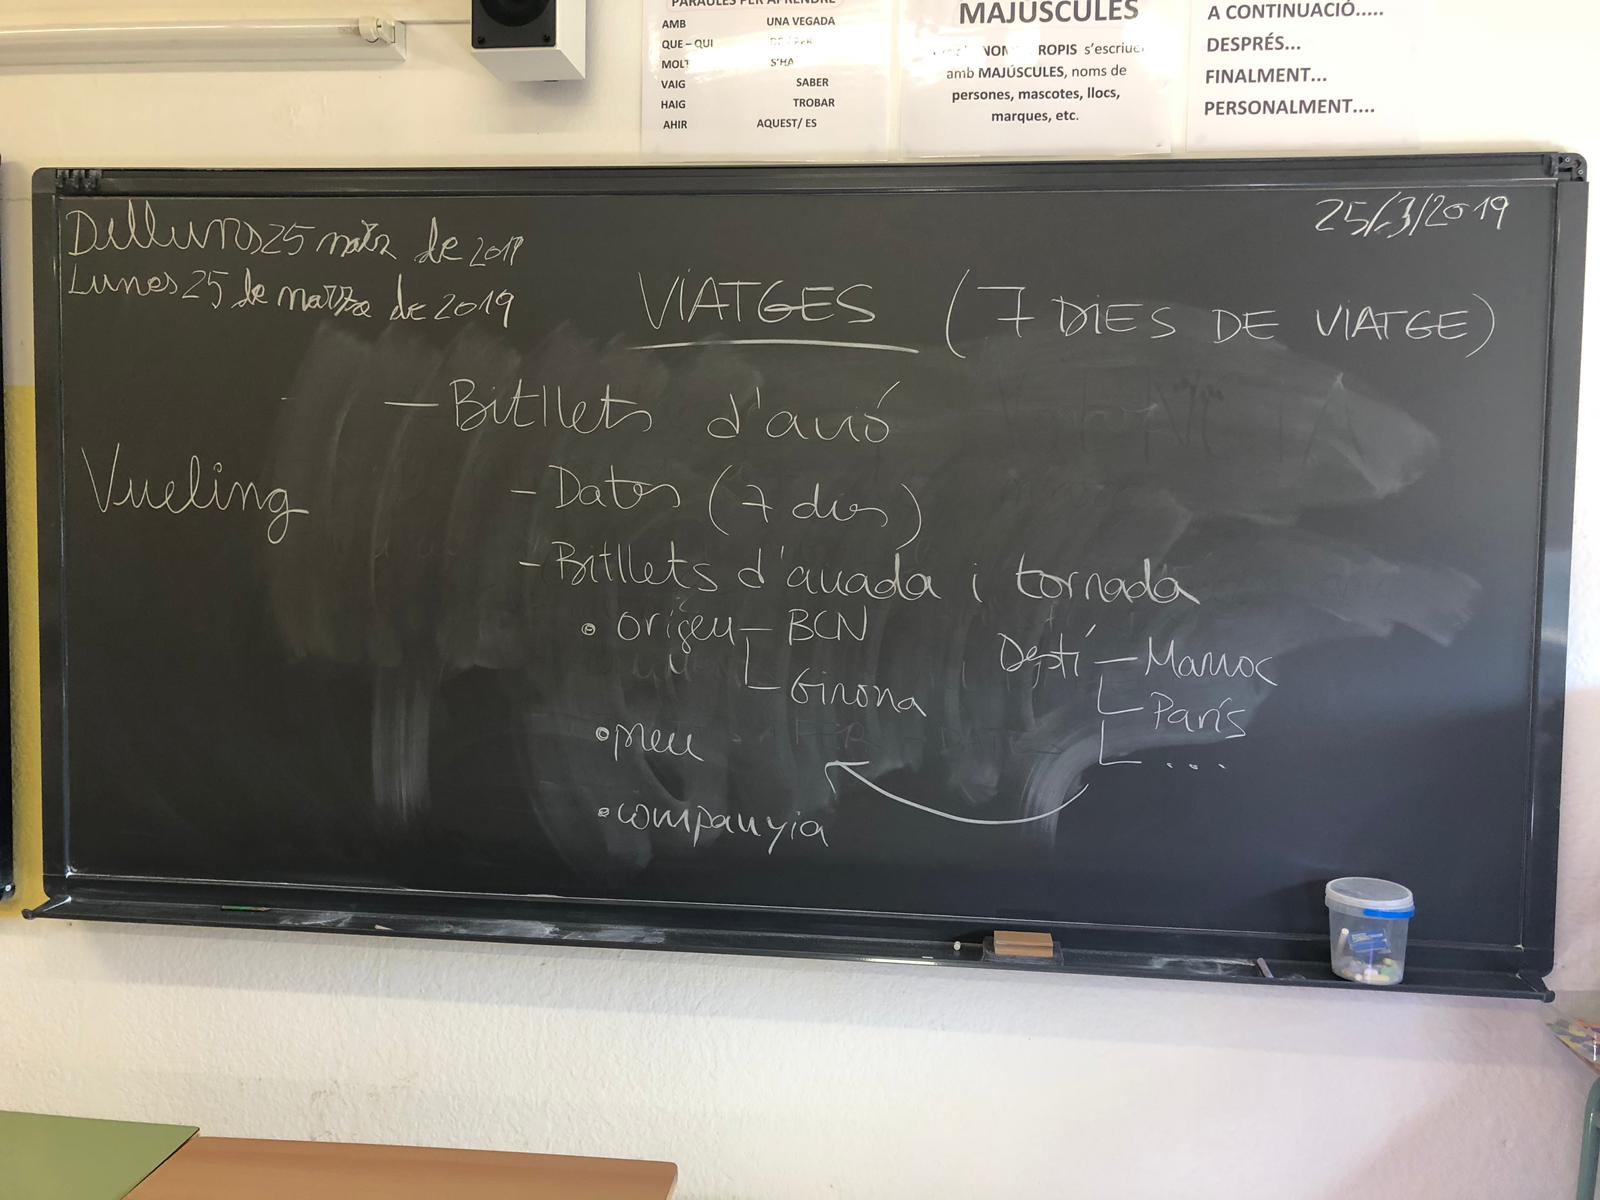 PARAULES PER APRENDRE
AMB UNA VEGADA
QUE – QUI
MOLT S'HA
VAIG SABER
HAIG TROBAR
AHIR AQUEST/ ES
MAJÚSCULES
s'escriuen
amb MAJÚSCULES, noms de
persones, mascotes, llocs,
marques, etc.
A CONTINUACIÓ.....
DESPRÉS...
FINALMENT...
PERSONALMENT....
Dilluns 25 de 2019
Lunes 25 de marzo de 2019
25/3/2019
VIATGES (7 DIES DE VIATGE)
- Bitllets d'avió
Vueling
- Dates (7 dies)
- Bitllets d'anada i tornada
• origen - BCN
Girona
Destí - Marroc
París
...
• preu
• companyia